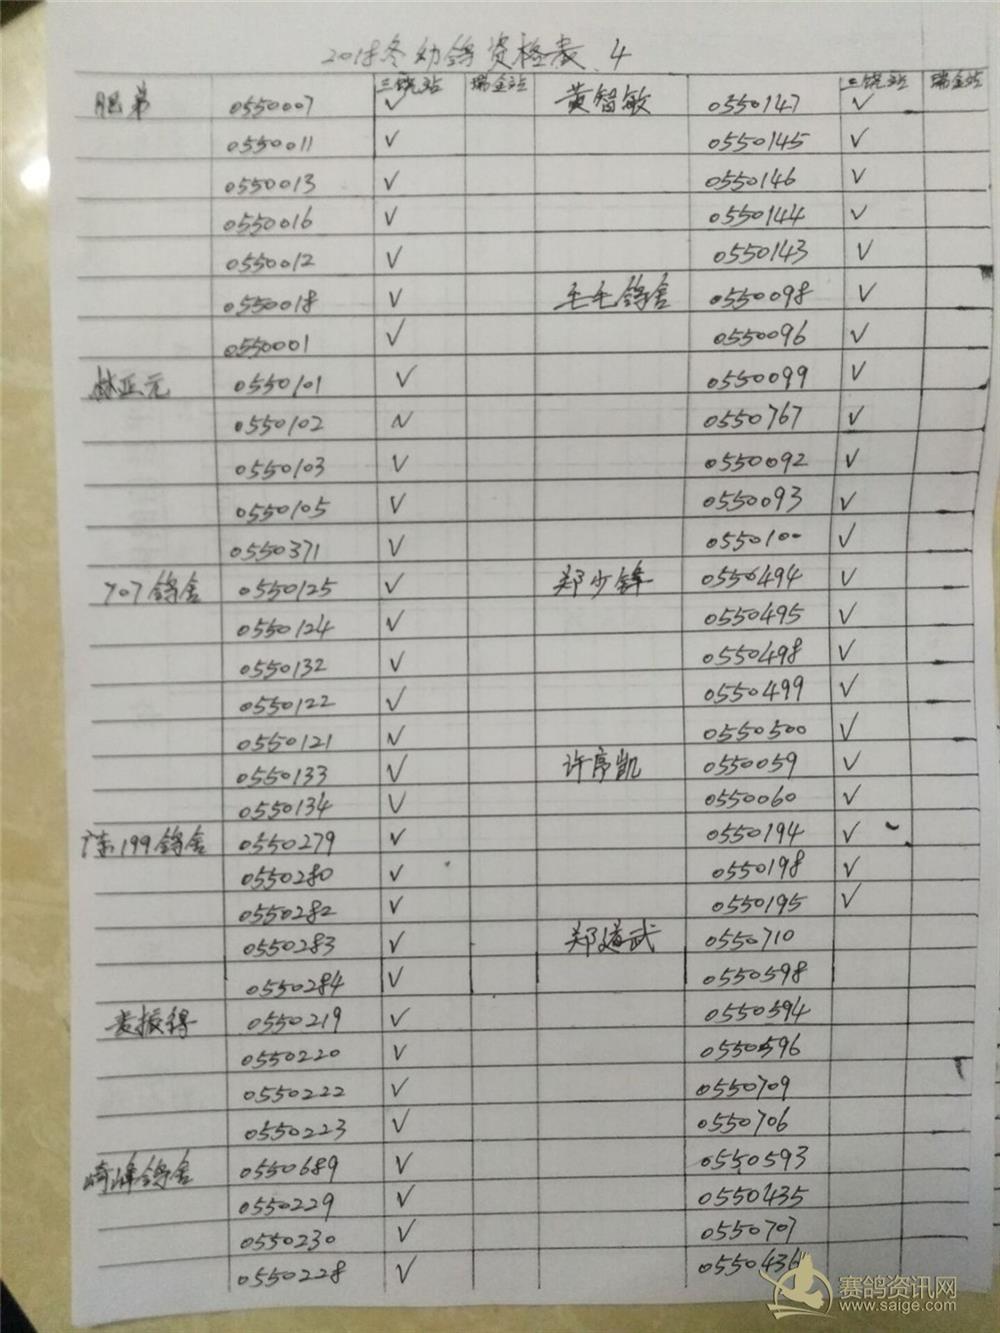 2018冬幼鸽资格表.4
三饶站 瑞金站 三饶站 瑞金站
肥弟 0550007 √ 黄智敏 0550147 √
0550011 √ 0550145 √
0550013 √ 0550146 √
0550016 √ 0550144 √
0550012 √ 0550143 √
0550018 √ 毛毛鸽舍 0550098 √
0550001 √ 0550096 √
林亚元 0550101 √ 0550099 √
0550102 √ 0550767 √
0550103 √ 0550092 √
0550105 √ 0550093 √
0550371 √ 0550100 √
707鸽舍 0550125 √ 郑少锋 0550494 √
0550124 √ 0550495 √
0550132 √ 0550498 √
0550122 √ 0550499 √
0550121 √ 0550500 √
0550133 √ 许序凯 0550059 √
0550134 √ 0550060 √
广东199鸽舍 0550279 √ 0550194 √
0550280 √ 0550198 √
0550282 √ 0550195 √
0550283 √ 郑道武 0550710
0550284 √ 0550598
振得 0550219 √ 0550594
0550220 √ 0550596
0550222 √ 0550709
0550223 √ 0550706
崎峰鸽舍 0550689 √ 0550593
0550229 √ 0550435
0550230 √ 0550707
0550228 √ 0550436
赛鸽资讯网
www.saige.com